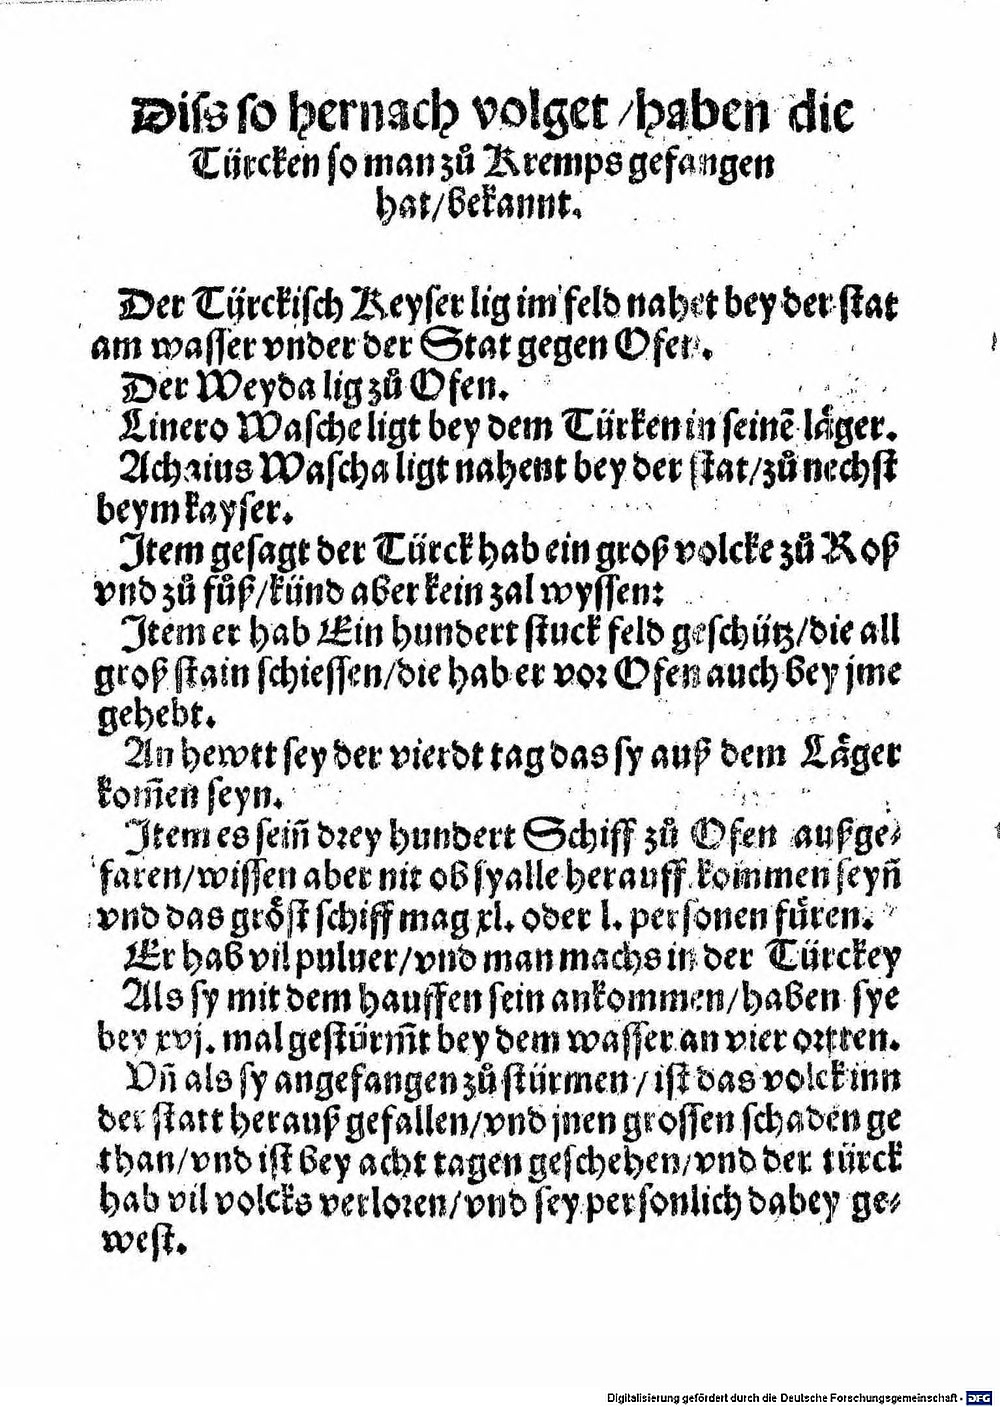 Diſs so hernach volget /haben die
Türcken ſo man zů Kremps gefangen
hat/bekannt.
Der Türckiſch Keyſer lig im feld nahet bey der ſtat
am waſſer vnder der Stat gegen Ofen.
Der Weyda lig zů Ofen.
Linero Waſche ligt bey dem Türken in ſeinē låger.
Achaius Waſcha ligt nahent bey der ſtat/zů nechſt
beym kayſer.
Item geſagt der Türck hab ein groß volcke zů Roß
vnd zů fůß/künd aber kein zal wyſſen:
Item er hab Ein hundert ſtuck feld geſchütz/die all
groß ſtain ſchieſſen/die hab er vor Ofen auch bey jme
gehebt.
An hewtt ſey der vierdt tag das ſy auß dem Låger
kom̄en ſeyn.
Item es ſein̄ drey hundert Schiff zů Ofen außge⸗
faren/wiſſen aber nit ob ſy alle herauff kommen ſeyn̄
vnd das gröſt ſchiff mag xl. oder l. perſonen füren.
Er hab vil puluer/vnd man machs in der Türckey
Als ſy mit dem hauffen ſein ankommen/haben ſye
bey xvj. mal geſtürm̄t bey dem waſſer an vier orrten.
Vn̄ als ſy angefangen zů ſtürmen/iſt das volck inn
der ſtatt herauß gefallen/vnd jnen groſſen ſchaden ge
than/vnd iſt bey acht tagen geſchehen/vnd der türck
hab vil volcks verloren/vnd ſey perſonlich dabey ge⸗
weſt.
Digitalisierung gefördert durch die Deutsche Forschungsgemeinschaft - DFG